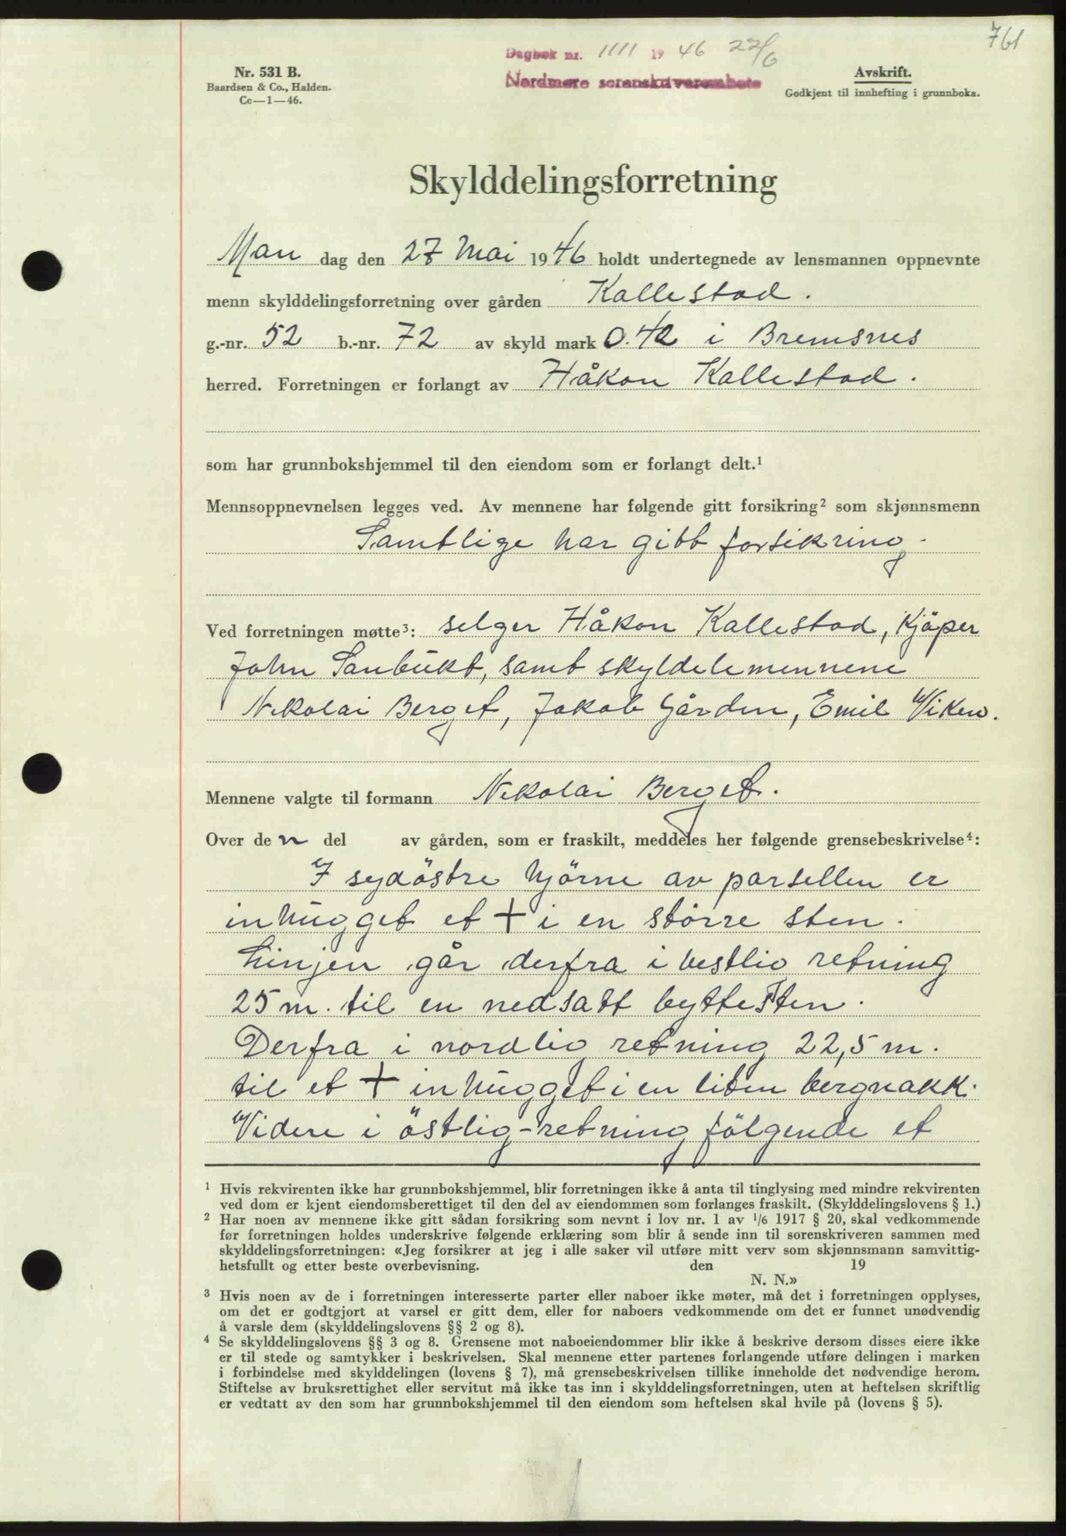 761
Dagbok nr. 1111 1946 22/6
Nordmøre sorenskriverembete
Nr. 531 B.
Baardsen & Co., Halden.
Cc—1—46.
Avskrift.
Godkjent til innhefting i grunnboka.
Skylddelingsforretning
Man dag den 27 Mai 1946 holdt undertegnede av lensmannen oppnevnte
menn skylddelingsforretning over gården Kallestad.
g.-nr. 52 b.-nr. 72 av skyld mark 0.42 i Bremsnes
herred. Forretningen er forlangt av Håkon Kallestad.
som har grunnbokshjemmel til den eiendom som er forlangt delt.¹
Mennsoppnevnelsen legges ved. Av mennene har følgende gitt forsikring² som skjønnsmenn
Samtlige har gitt forsikring.
Ved forretningen møtte³: selger Håkon Kallestad, Kjöper
John Sanbukt, samt skyldelemennene
Nikolai Berget, Jakob Gården, Emil Viken.
Mennene valgte til formann Nikolai Berget.
Over de n del av gården, som er fraskilt, meddeles her følgende grensebeskrivelse⁴:
I sydöstre hjörne av parsellen er
inhugget et + i en större sten.
Linjen går derfra i vestlig retning
25 m. til en nedsatt byttesten.
Derfra i nordlig retning 22,5 m.
til et + inhugget i en liten bergnakk.
Videre i östlig-retning fölgende et
¹ Hvis rekvirenten ikke har grunnbokshjemmel, blir forretningen ikke å anta til tinglysing med mindre rekvirenten
ved dom er kjent eiendomsberettiget til den del av eiendommen som forlanges fraskilt. (Skylddelingslovens § 1.)
² Har noen av mennene ikke gitt sådan forsikring som nevnt i lov nr. 1 av 1/6 1917 § 20, skal vedkommende
før forretningen holdes underskrive følgende erklæring som blir å sende inn til sorenskriveren sammen med
skylddelingsforretningen: «Jeg forsikrer at jeg i alle saker vil utføre mitt verv som skjønnsmann samvittig-
hetsfullt og etter beste overbevisning. den 19
N. N.»
³ Hvis noen av de i forretningen interesserte parter eller naboer ikke møter, må det i forretningen opplyses,
om det er godtgjort at varsel er gitt dem, eller for naboers vedkommende om det er funnet unødvendig
å varsle dem (skylddelingslovens §§ 2 og 8).
⁴ Se skylddelingslovens §§ 3 og 8. Grensene mot naboeiendommer blir ikke å beskrive dersom disses eiere ikke
er til stede og samtykker i beskrivelsen. Skal mennene etter partenes forlangende utføre delingen i marken
i forbindelse med skylddelingen (lovens § 7), må grensebeskrivelsen tillike inneholde det nødvendige herom.
Stiftelse av bruksrettighet eller servitut må ikke tas inn i skylddelingsforretningen, uten at heftelsen skriftlig
er vedtatt av den som har grunnbokshjemmel til den eiendom som heftelsen skal hvile på (lovens § 5).